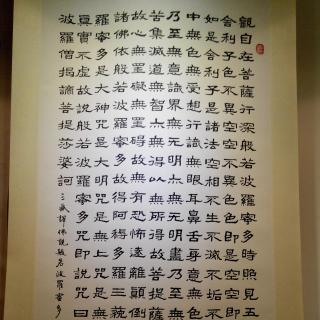 觀自在菩薩行深般若波羅蜜多時照見五
舍利子色不異空空不異色色即是空空即
如是舍利子是諸法空相不生不滅不垢不
中無色無受想行識無眼耳鼻舌身意無色
乃至無意識界無無明亦無無明盡乃至無
苦集滅道無智亦無得以無所得故菩提薩
故心無罣礙無罣礙故無有恐怖遠離顛倒
諸佛依般若波羅蜜多故得阿耨多羅三藐
羅蜜多是大神咒是大明咒是無上咒是無
真實不虛故說般若波羅蜜多咒即說咒曰
波羅僧揭諦菩提莎婆訶
三藏譯佛說般若波羅蜜多